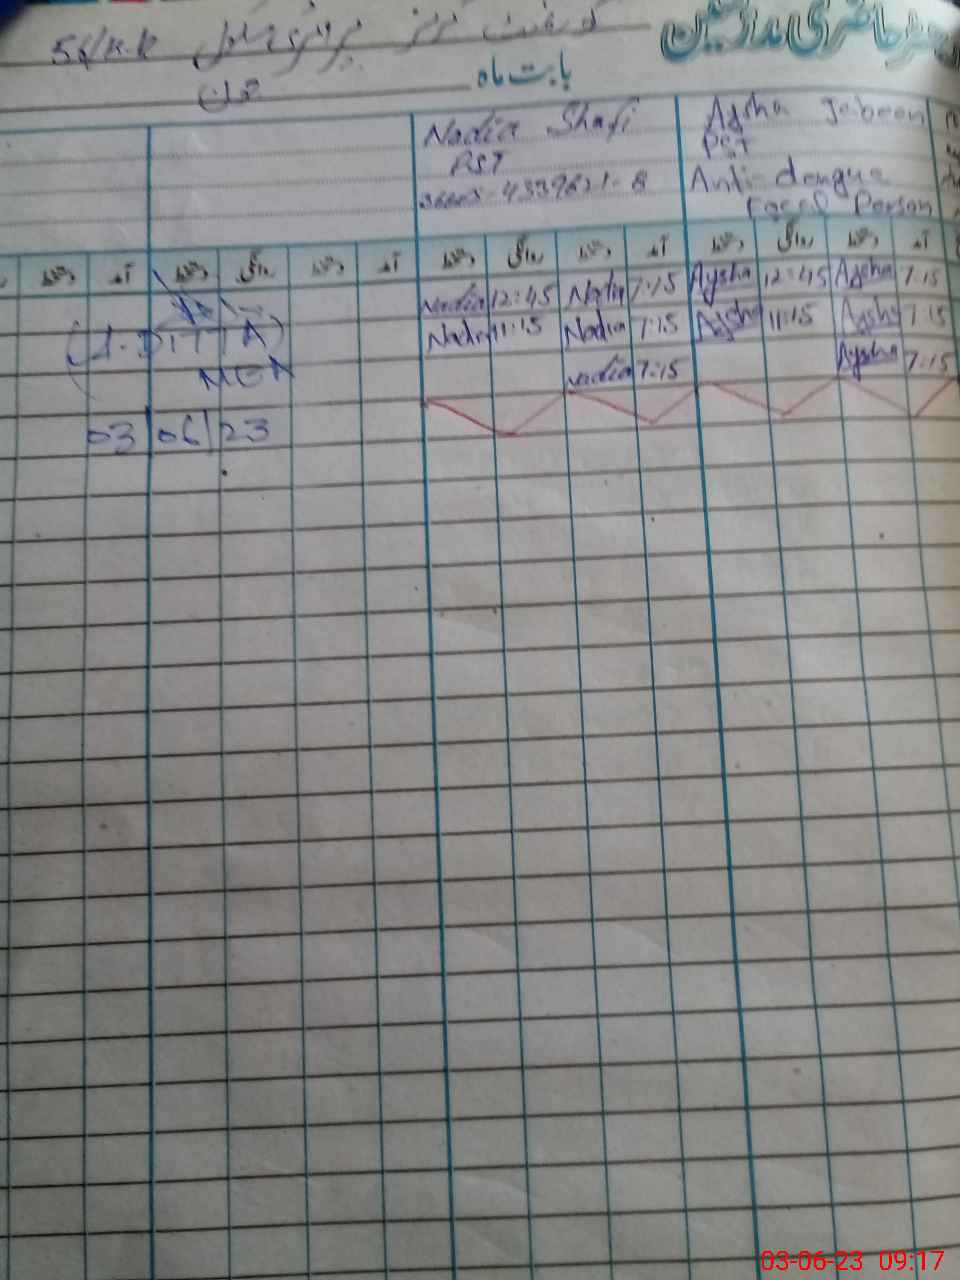 رجسٹر حاضری مدرسین
گورنمنٹ گرلز پرائمری سکول
بابت ماہ جون
Aysha Jabeen
PST
Anti-dengue
Focal Person
Nadia Shafi
PST
آمد دستخط روانگی دستخط آمد دستخط روانگی دستخط آمد دستخط روانگی دستخط آمد دستخط
7:15 Aysha 12:45 Aysha 7:15 Nadia 12:45 Nadia
7:15 Aysha 11:15 Aysha 7:15 Nadia 11:15 Nadia
7:15 Aysha 7:15 Nadia
MEA
03/06/23
03-06-23 09:17